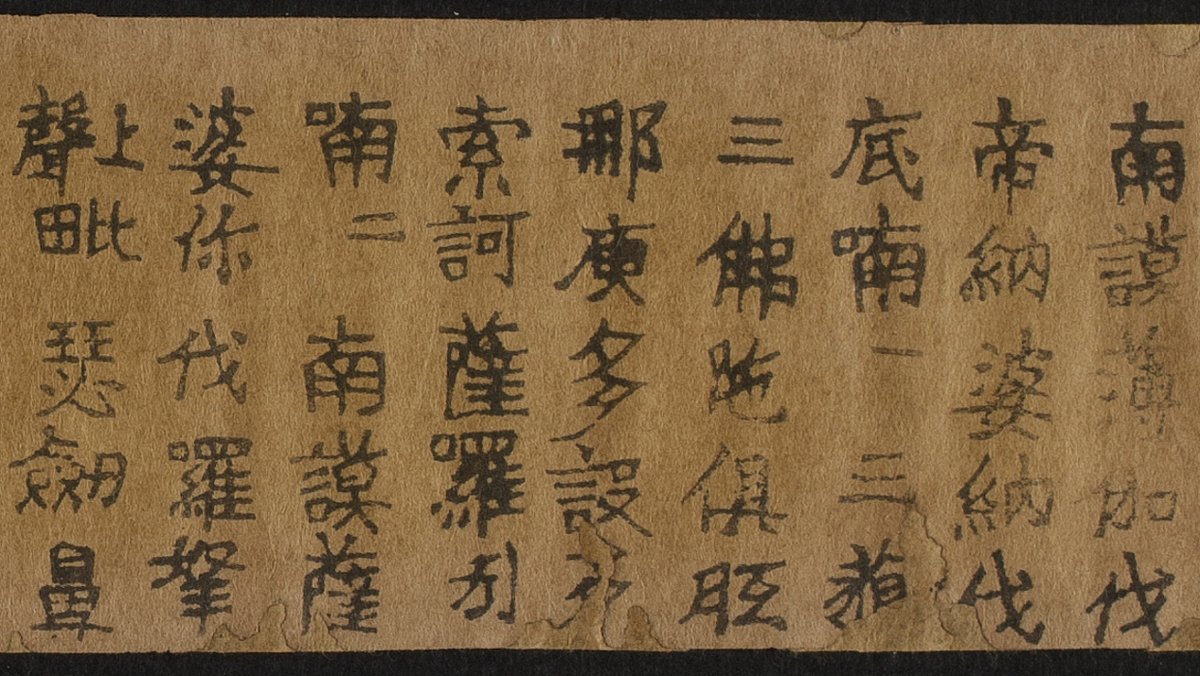 南謨薄伽伐
帝納婆納伐
底喃一三藐
三佛陁俱胝
那庾多設
索訶薩囉引
喃二南謨薩
婆你伐羅拏
上聲毗瑟劔鼻